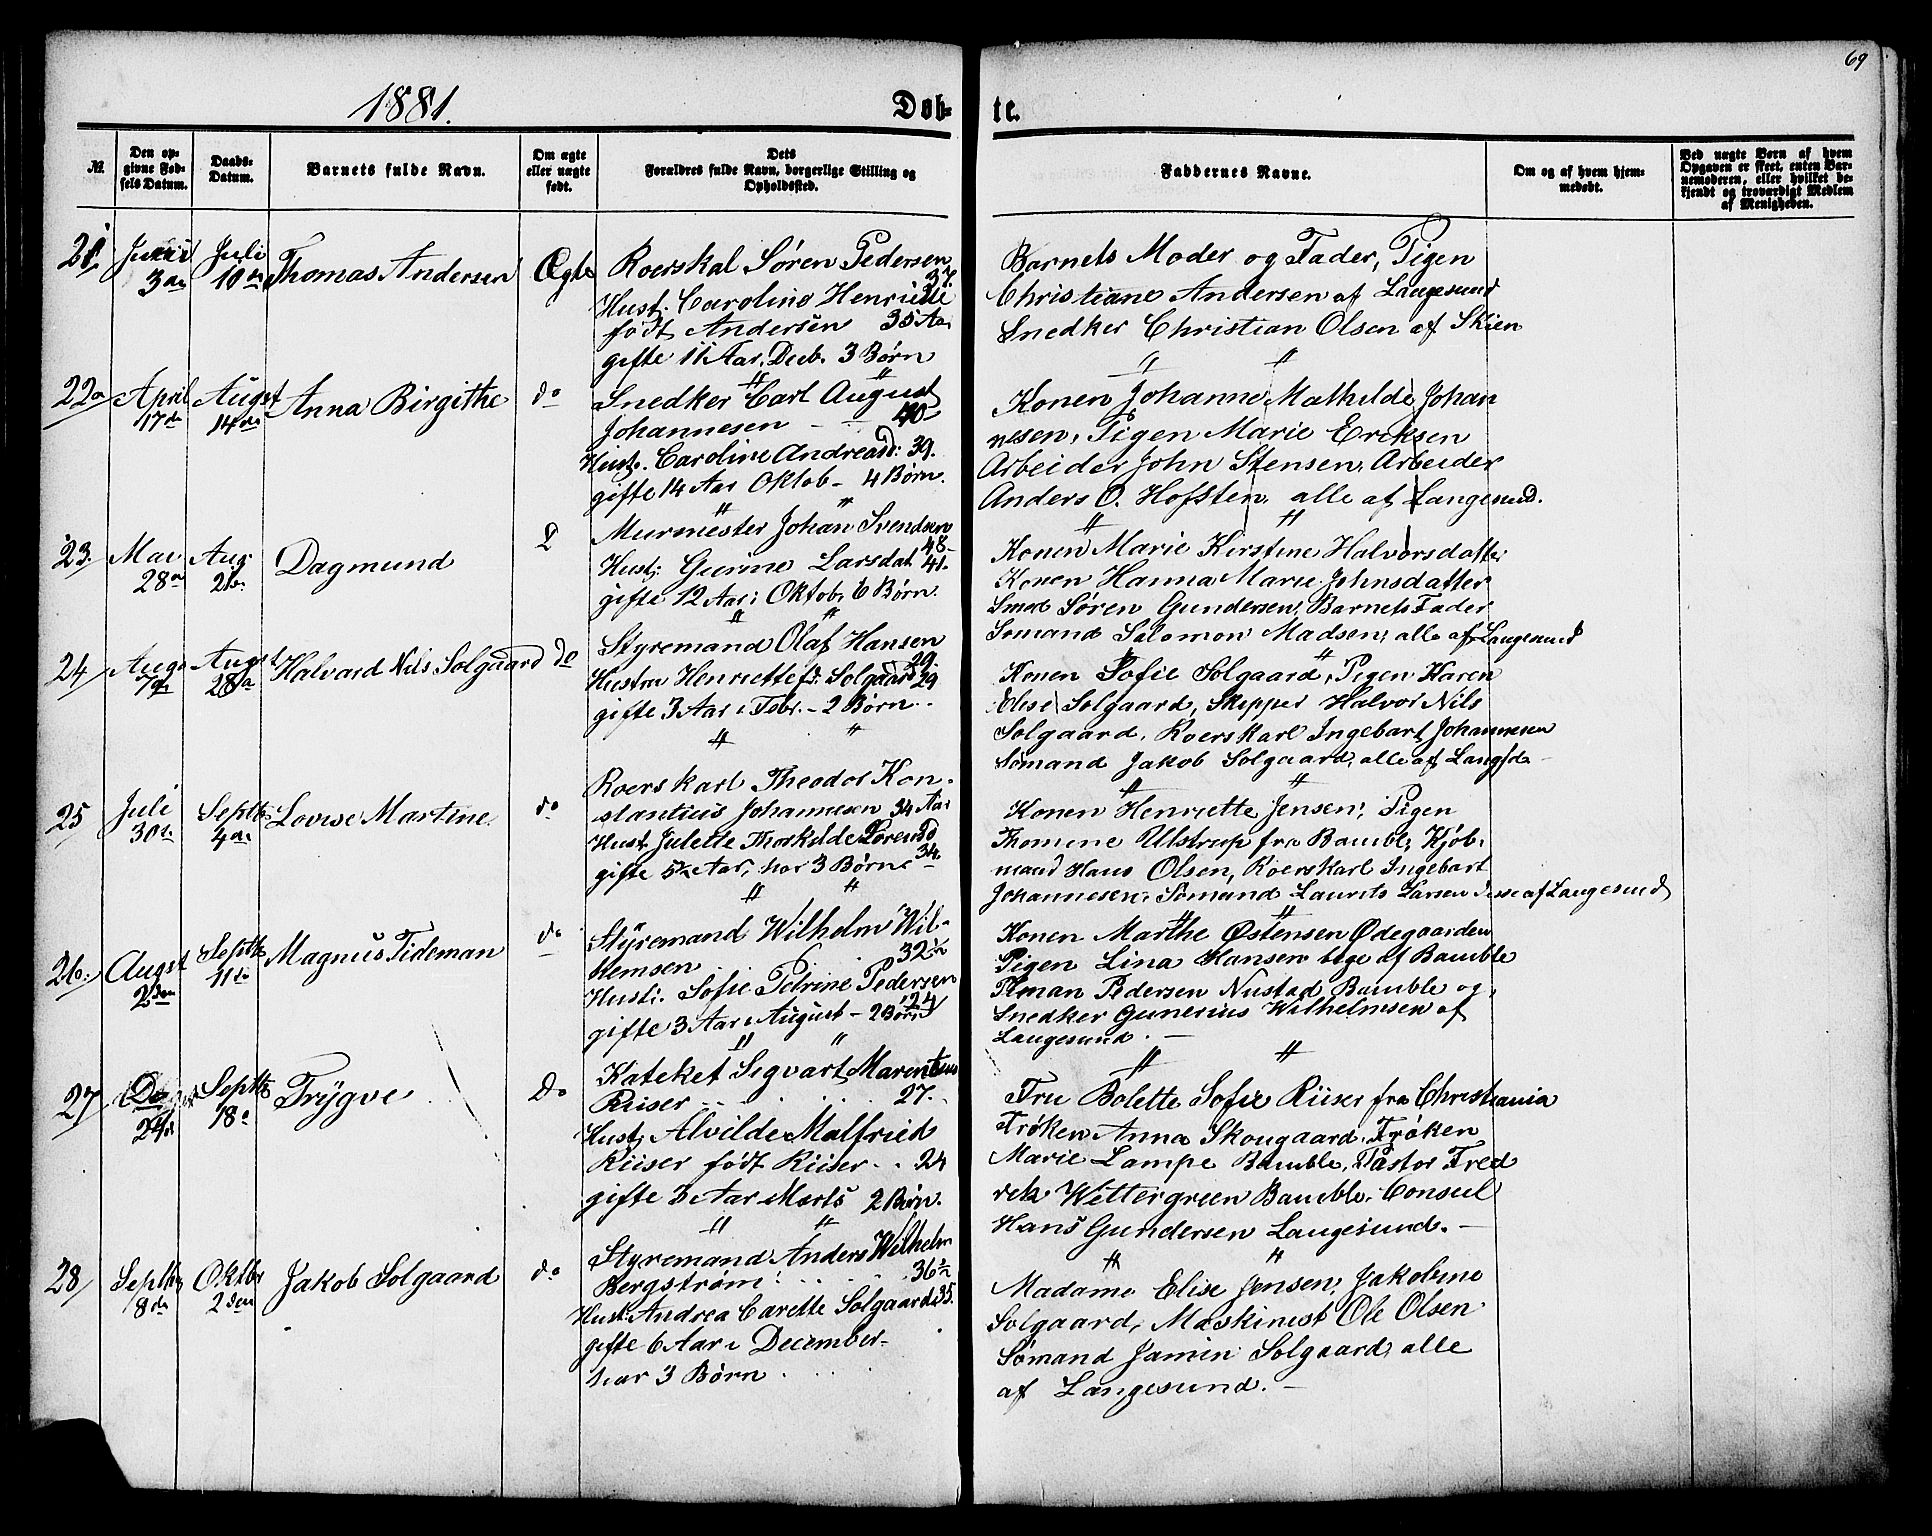 69
1881.
Døb-
te.
№
Den op-
givne Fød-
sels Datum.
Daabs-
Datum.
Barnets fulde Navn.
Om ægte
eller uægte
født.
Dets
Forældres fulde Navn, borgerlige Stilling og
Opholdssted.
Faddernes Navne.
Om og af hvem hjem-
medøbt.
Ved uægte Børn af hvem
Opgaven er skeet, enten Bar-
nemoderen, eller hvilket be-
kjendt og troværdigt Medlem
af Menigheden.
21
3die
Juli
10de
Thomas Andersen
Ægte
Roerskal Søren Pedersen
37
Hust. Caroline Henriette
født Andersen 35 Aar
gifte 11 Aar, Decb. 3 Børn
Barnets Moder og Fader, Pigen
Christiane Andersen af Langesund
Snedker Christian Olsen af Skien
22
April
17de
Augst
14de
Anna Birgithe
do
Snedker Carl August
Johannesen - 40
Hust. Caroline Andreasd: 39.
gifte 14 Aar Oktob - 4 Børn.
Konen Johanne Mathilde Johan
nesen, Pigen Marie Eriksen
Arbeider John Stensen, Arbeider
Anders O. Hofsten, alle af Langesund.
23.
Mai
28
Aug
21
Dagmund
Murmester Johan Svendsen
48-
Hust; Gurine Larsdat 41.
gifte 12 Aar i Oktob, 6 Børn.
Konen Marie Kirstine Halvorsdatter
Konen Hanna Marie Johnsdatter
Smed Søren Gundersen, Barnets Fader
Sømand Salomon Madsen, alle af Langesund
24
Augs
7de
Augst
28
Halvard Nils Solgaard
do
Styremand Olaf Hansen
29.
Hustru Henriette f: Solgaard 29
gifte 3 Aar i Febr. - 2 Børn
Konen Sofie Solgaard, Pigen Karen
Elise Solgaard, Skipper Halvor Nils
Solgaard, Roerskarl Ingebart Johannesen
Sømand Jakob Solgaard, alle af Langsd
25
Juli
30te
Septb
4de
Lovise Martine
do
Roerskarl Theodor Kon-
stantius Johannesen 34 Aar
Hust Julette Thorkilde Lorensd
34.
gifte 5 Aar, har 3 Børn
Konen Henriette Jensen, Pigen
Thomine Ulstrup fra Bamble, Kjøb-
mand Hans Olsen, Roerskarl Ingebart
Johannesen, Sømand Laurits Larsen disse af Langesund
26.
Augst
2den
Septb
11te
Magnus Tideman
do
Styremand Wilhelm Wil-
helmsen 32½
Hust: Sofie Petrine Pedersen
24
gifte 3 Aar i August - 2 Børn
Konen Marthe Østensen Ødegaarden
Pigen Lina Hansen begge af Bamble
Timan Pedersen Nustad Bamble og
Snedker Gunerius Wilhelmsen af
Langesund.
27
24de
Septb
18
Trygve
do
Kateket Segvart Marentius
Riiser 27.
Hust; Alvilde Malfried
Riiser født Riiser 24
gifte 3 Aar Marts 2 Børn.
Fru Bolette Sofie Riiser fra Christiania
Frøken Anna Skougaard, Frøken
Marie Lampe Bamble, Pastor Fred
rek Wettergreen Bamble, Consul
Hans Gundersen Langesund.
28
Septb
8de
Oktbr
2den
Jakob Solgaard
do
Styremand Anders Wilhelm
Bergstrøm 36½
Hust: Andrea Carette Solgaard 35.
gifte 6 Aar i December
har 3 Børn
Madame Elise Jensen, Jakobine
Solgaard, Maskinist Ole Olsen
Sømand Jamin Solgaard, alle
af Langesund.